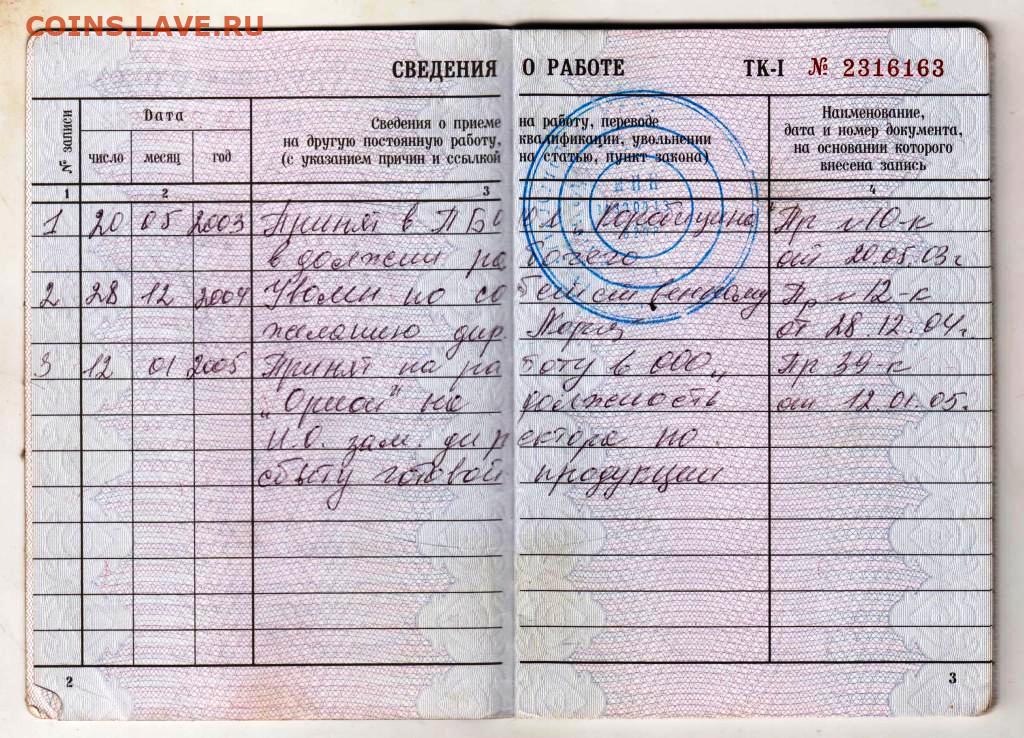 COINS.LAVE.RU
СВЕДЕНИЯ О РАБОТЕ ТК-I № 2316163
№ записи
Дата
число месяц год
Сведения о приеме на работу, переводе
на другую постоянную работу, квалификации, увольнении
(с указанием причин и ссылкой на статью, пункт закона)
Наименование,
дата и номер документа,
на основании которого
внесена запись
1 2 3 4
1 20 05 2003 Принят в ПБО Пр №10-к
в должн рабочего от 20.05.03г
2 28 12 2004 Уволен по собственному Пр №12-к
желанию дир от 28.12.04г.
3 12 01 2005 Принят на работу в ООО „ Пр 39-к
„Орион" на должность от 12.01.05.
И.О. зам. директора по
сбыту готовой продукции
2 3